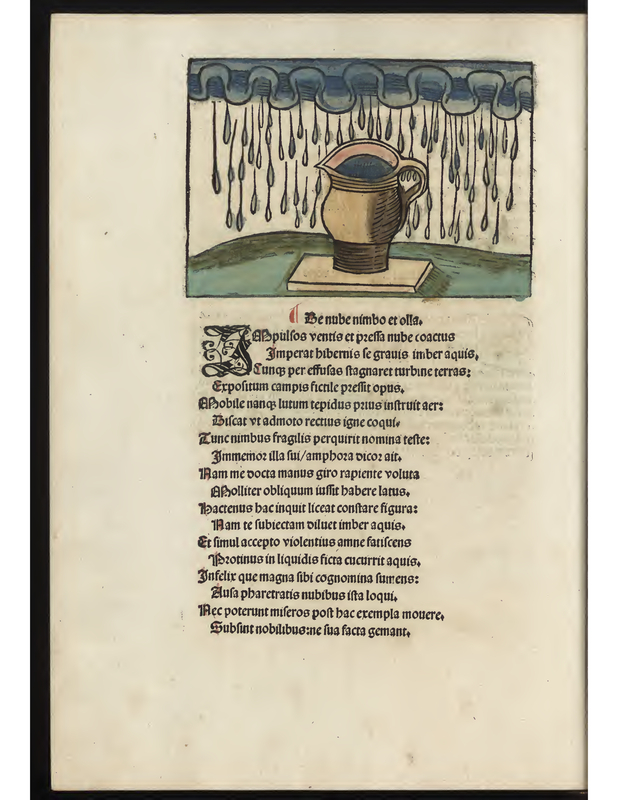 ¶ De nube nimbo et olla.
IMpulsos ventis et pressa nube coactus
Imperat hibernis se grauis imber aquis.
Cunqꝫ per effusas stagnaret turbine terras:
Expositum campis fictile pressit opus.
Mobile nanqꝫ lutum tepidus prius instruit aer:
Discat vt admoto rectius igne coqui.
Tunc nimbus fragilis perquirit nomina teste:
Immemor illa sui/amphora dicor ait.
Nam me docta manus giro rapiente voluta
Molliter obliquum iussit habere latus.
Hactenus hac inquit liceat constare figura:
Nam te subiectam diluet imber aquis.
Et simul accepto violentius amne fatiscens
Protinus in liquidis ficta cucurrit aquis.
Infelix que magna sibi cognomina sumens:
Ausa pharetratis nubibus ista loqui.
Nec poterunt miseros post hac exempla mouere.
Subsint nobilibus:ne sua facta gemant.